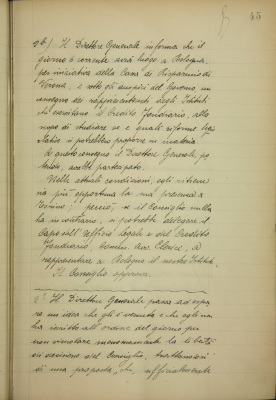 85
2b) Il Direttore Generale informa che il
giorno 6 corrente avrà luogo a Bologna,
per iniziativa della Cassa di Risparmio di
Verona, e sotto gli auspici del Governo un
convegno dei rappresentanti degli Istituti
che esercitano il Credito Fondiario, allo
scopo di studiare se e quali riforme
si potrebbero proporre in materia.
A questo convegno il Direttore Generale,
avrebbe partecipato.
Nelle attuali condizioni egli ritiene
più opportuna la sua presenza a
Torino; perciò, se il Consiglio nulla
ha in contrario, si potrebbe delegare il
Capo dell'Ufficio legale e del Credito
Fondiario, Avv. a
rappresentare a Bologna il nostro Istituto.
Il Consiglio approva.
2° Il Direttore Generale passa ad espor
re un'idea che gli è venuta e che egli non
ha iscritto all'ordine del giorno per
non vincolare menomamente la libertà
di decisione del Consiglio, trattandosi
di una proposta, che ufficialmente